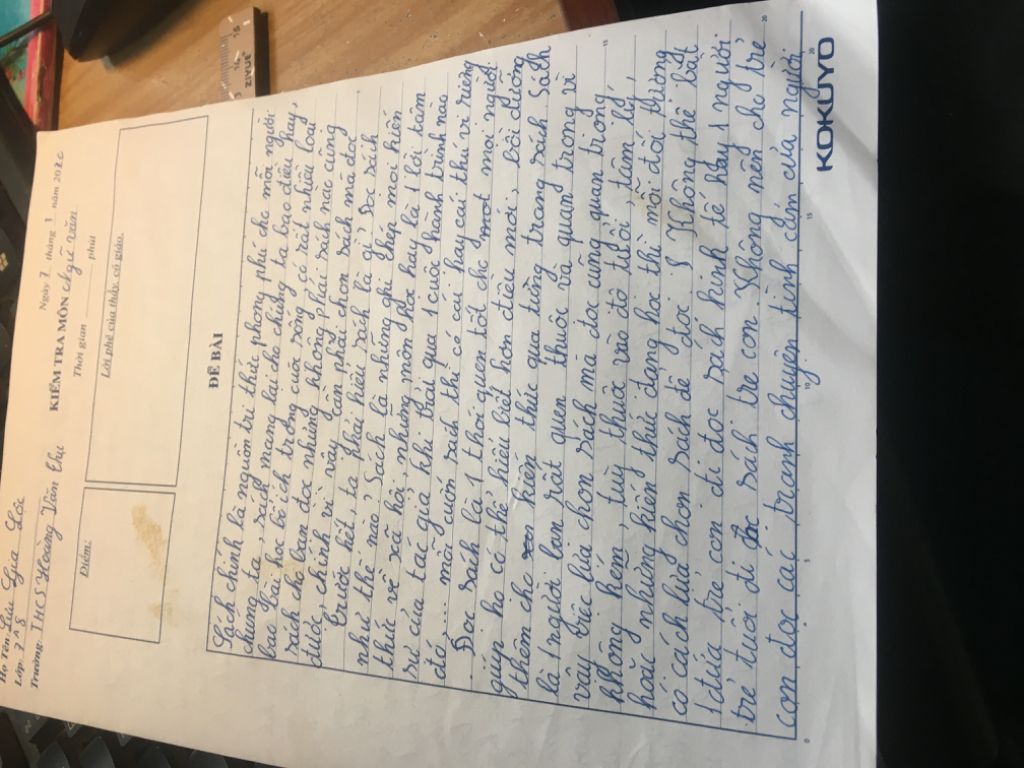 Họ tên: Lưu Gia Lộc
Lớp: 7A8
Trường: THCS Hoàng Văn Thụ
Ngày 7 tháng 3 năm 2020
KIỂM TRA MÔN Ngữ văn
Thời gian phút
Điểm:
Lời phê của thầy, cô giáo.
ĐỀ BÀI
Sách chính là nguồn tri thức phong phú cho mỗi người
chúng ta, sách mang lại cho chúng ta bao điều hay,
bao bài học bổ ích trong cuộc sống, có rất nhiều loại
sách cho bạn đọc nhưng không phải sách nào cũng
được, chính vì vậy cần phải chọn sách mà đọc
Trước hết, ta phải hiểu sách là gì? Đọc sách
như thế nào? Sách là những nghi ghép nơi kiến
thức về xã hội, những môn học hay là 1 lời tâm
sự của tác giả khi trải qua 1 cuộc hành trình nào
đó... mỗi cuốn sách thì có cái hay cái thú vị riêng
Đọc sách là 1 thói quen tốt cho mọi người
giúp họ có thể hiểu biết hơn điều mới, bồi dưỡng
thêm cho kiến thức qua từng trang sách. Sách
là 1 người bạn rất quen thuộc và quan trọng vì
vậy việc lựa chọn sách mà đọc cũng quan trọng
không kém, tùy thuộc vào độ tuổi, tâm lý,
hoặc những kiến thức đang học thì mỗi đối tượng
có cách lựa chọn sách để đọc. Không thể bắt
1 đứa trẻ con đi đọc sách kinh tế hay 1 người
trẻ tuổi đi đọc sách trẻ con. Không nên cho trẻ
con đọc các tranh chuyện tình cảm của người
KOKUYO